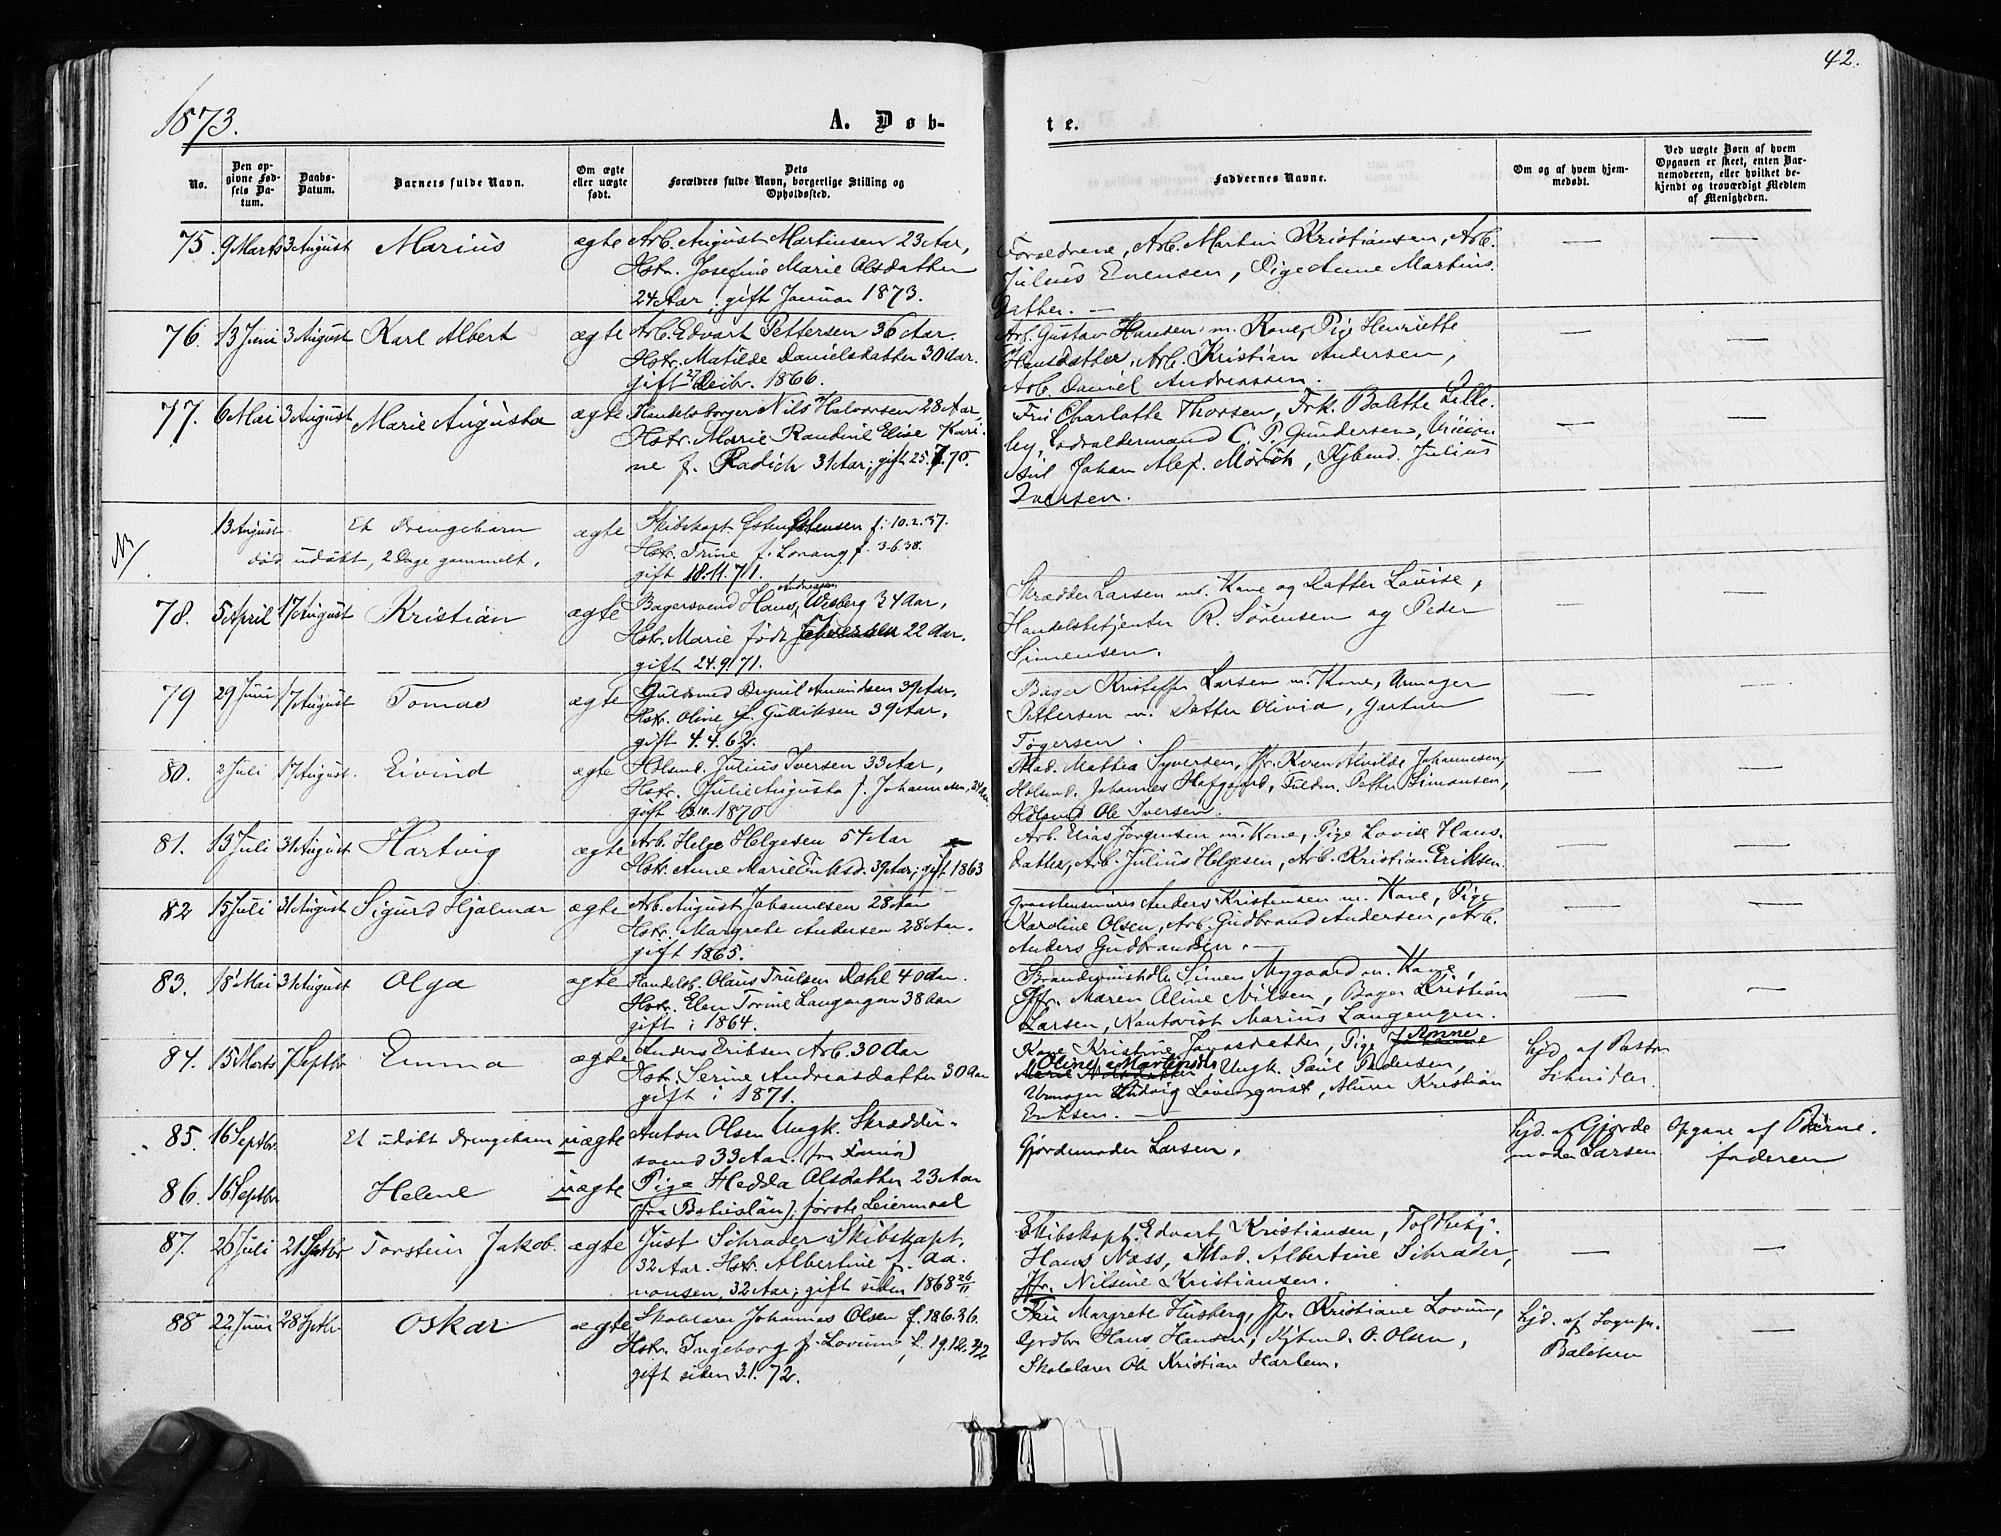 42.
1873.
A. Døb-
te.
No.
Den op-
givne Fød-
sels Da-
tum.
Daabs-
Datum.
Barnets fulde Navn.
Om ægte
eller uægte
født.
Dets
Forældres fulde Navn, borgerlige Stilling og
Opholdssted.
Faddernes Navne.
Om og af hvem hjem-
medøbt.
Ved uægte Børn af hvem
Opgaven er skeet, enten Bar-
nemoderen, eller hvilket be-
kjendt og troværdigt Medlem
af Menigheden.
75. 9 Marts 3 August Marius ægte Arb. August Martinsen 23 Aar,
Hstr. Josefine Marie Olsdatter
24 Aar; gift Januar 1873.
Forældrene, Arb. Martin Kristiansen, Arb.
Julius Evensen, Pige Anne Martins
datter. — — —
76. 13 Juni 3 August Karl Albert ægte Arb. Edvart Pettersen 36 Aar.
Hstr. Matilde Danielsdatter 30 Aar.
gift 27 Decbr. 1866.
Arb. Gustav Hansen m. Kone, Pige Henriette
Hansdatter, Arb. Kristian Andersen,
Arb. Daniel Andreassen. — —
77. 6 Mai 3 August Marie Augusta ægte Handelsborger Nils Halvorsen 28 Aar,
Hstr. Marie Randine Elise Kari-
ne f. Radich 31 Aar; gift 25.7.70.
Fru Charlotte Thorsen, Frk. Balette Lille-
by, Lodsoldermand C. P. Gundersen,
Johan Alex. Mørch, Kjbmd. Julius
Iversen. — —
N/ 13 August Et Drengebarn ægte Skibskapt. Østen f. 10.2.37.
død udøbt, 2 Dage gammelt. Hstr. Trine f. Lorang f. 3.6.38.
gift 18.11.71.
78. 5 April 17 August Kristian ægte Bagersvend Hans Andreasen Wesberg 34 Aar,
Hstr. Marie født 22 Aar.
gift 24.9.71.
Skrædder Larsen m. Kone og Datter Louise,
Handelsbetjenter R. Sørensen og Peder
Simensen. — —
79 29 Juni 17 August Tomas ægte Guldsmed Brynil Amundsen 39 Aar,
Hstr. Oline f. Gulliksen 39 Aar,
gift 4.4.62.
Bager Kristoffer Larsen m. Kone, Urmager
Pettersen m. Datter Olivia, Gartner
Tøgersen. — —
80. 2 Juli 17 August. Eivind ægte Hdlsmd. Julius Iversen 33 Aar,
Hstr. Julie Augusta f. Johannesen, 24 Aar
gift 1870
Mad. Mathea Syversen, Jfr. Karen Alvilde Johannesen,
Hdlsmd. Johannes Hafgaard, Fuldm. Petter Simonsen,
Hdlsmd Ole Iversen. — —
81. 13 Juli 31 August Hartvig ægte Arb. Helge Helgesen 54 Aar
Hstr. Anne Marie Eriksd. 39 Aar; gift 1863
Arb. Elias Jørgensen m. Kone, Pige Lovise Hans-
datter, Arb. Julius Helgesen, Arb. Kristian Eriksen. — —
82 15 Juli 31 August Sigurd Hjalmar ægte Arb. August Johannesen 28 Aar
Hstr. Margrete Andersen 28 Aar.
gift 1865.
Graastensmurer Anders Kristensen m. Kone, Pige
Karoline Olsen, Arb. Gudbrand Andersen, Arb.
Anders Gudbrandsen. — — —
83. 18 Mai 31 August Olga ægte Handelsb. Olaus Trulsen Dahl 40 Aar.
Hstr. Elen Torine Langangen 38 Aar
gift i 1864.
Simen Nygaard m. Kone,
Jfr. Maren Aline Nilsen, Bager Kristian
Larsen, Kontorist Marius Langengen. — —
84. 15 Marts 7 Septbr Emma ægte Anders Eriksen Arb. 30 Aar
Hstr. Serine Andreasdatter 30 Aar
gift i 1871.
Kone Kristine Jonasdatter, Pige Anne
Oline Martinsd. Ungk. Paul Pedersen,
Urmager Ludvig Løvenqvist, Kristian
Eriksen. —
hjd. af Pastor
Schnitler. —
85. 16 Septbr. Et udøbt Drengebarn uægte Anton Olsen Ungk. Skrædder-
svend 33 Aar.
Gjordemoder Larsen.
hjd. af Gjorde
moder Larsen
Opgave af Barne-
faderen
86. 16 Septbr Helene uægte Pige Hedda Olsdatter 23 Aar
(fra Bohuslän); første Leiermaal
87. 26 Juli 21 Septbr Torstein Jakob. ægte Just Schrader Skibskapt.
32 Aar. Hstr. Albertine f. Aa-
nonsen, 32 Aar; gift siden 1868 26/11
Skibskapt. Edvart Kristiansen, Toldbetj.
Hans Nass, Mad. Albertine Schrader,
Jfr. Nilsine Kristiansen. — —
88 22 Juni 28 Septbr Oskar ægte Skolelærer Johannes Olsen f. 18.6.36.
Hstr. Ingeborg f. Lovum, f. 19.12.42
gift siden 3.1.72.
Fru Margrete Husberg, Jfr. Kristiane Lovum,
Grdbr. Hans Hansen, Kjbmd. O. Olsen,
Skolelærer Ole Kristian Harlem.
hjd. af Sognepr.
Balchen —